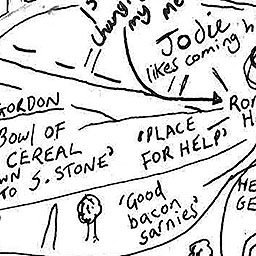 my
Jodie
likes coming h
GORDON
BOWL OF
CEREAL
TO S. STONE'
'PLACE
FOR HELP'
'Good
bacon
sarnies'
HE
GE